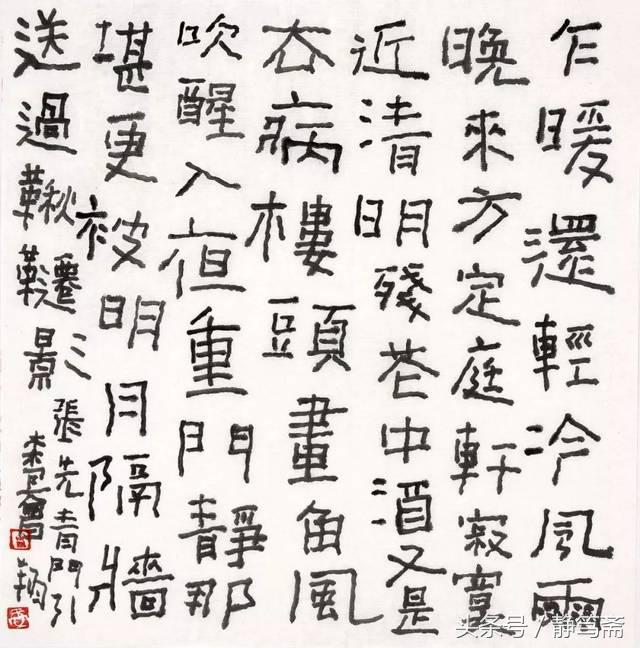 乍暖還輕冷風雨
晚來方定庭軒寂寞
近清明殘花中酒又是
去病樓頭畫角風
吹醒入夜重門靜那
堪更被明月隔牆
送過鞦韆影
張先青門引
头条号/静笃斋